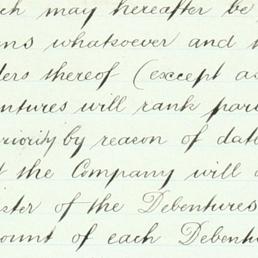 ch may hereafter be
ns whatsoever and
ders thereof (except as
entures will rank pari
riority by reason of date
the Company will
ister of the Debentures
ount of each Debentu